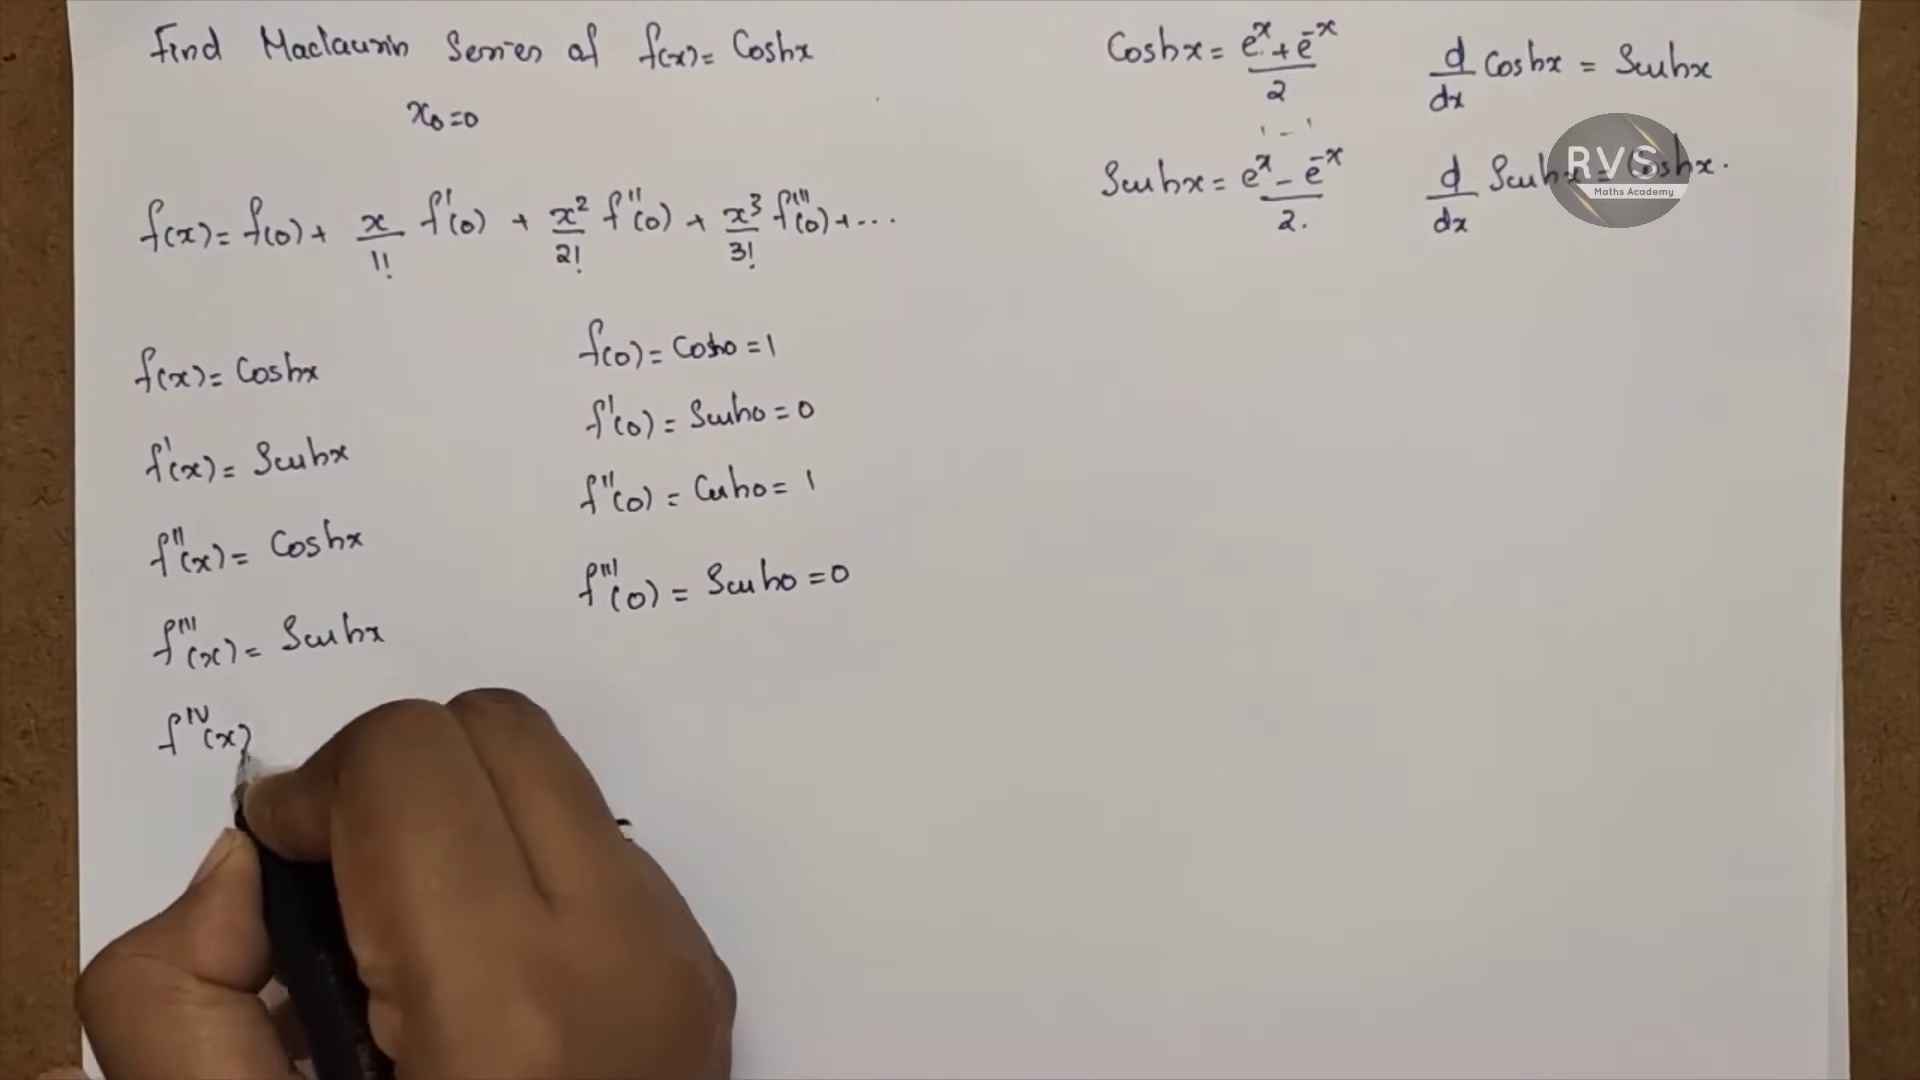 Find Maclaurin Series of f(x) = Coshx
x₀=0
f(x) = f(0) + x/1! f'(0) + x²/2! f''(0) + x³/3! f'''(0) + ...
f(x) = Coshx
f'(x) = Sinhx
f''(x) = Coshx
f'''(x) = Sinhx
f^IV(x)
f(0) = Cosh0 = 1
f'(0) = Sinh0 = 0
f''(0) = Cosh0 = 1
f'''(0) = Sinh0 = 0
Coshx = (e^x + e^-x)/2
Sinhx = (e^x - e^-x)/2.
d/dx Coshx = Sinhx
d/dx Sinhx = Coshx.
RVS
Maths Academy